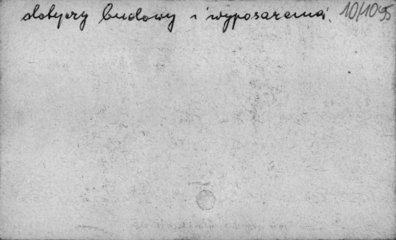 dotyczy budowy i wyposażenia. 10/10-95